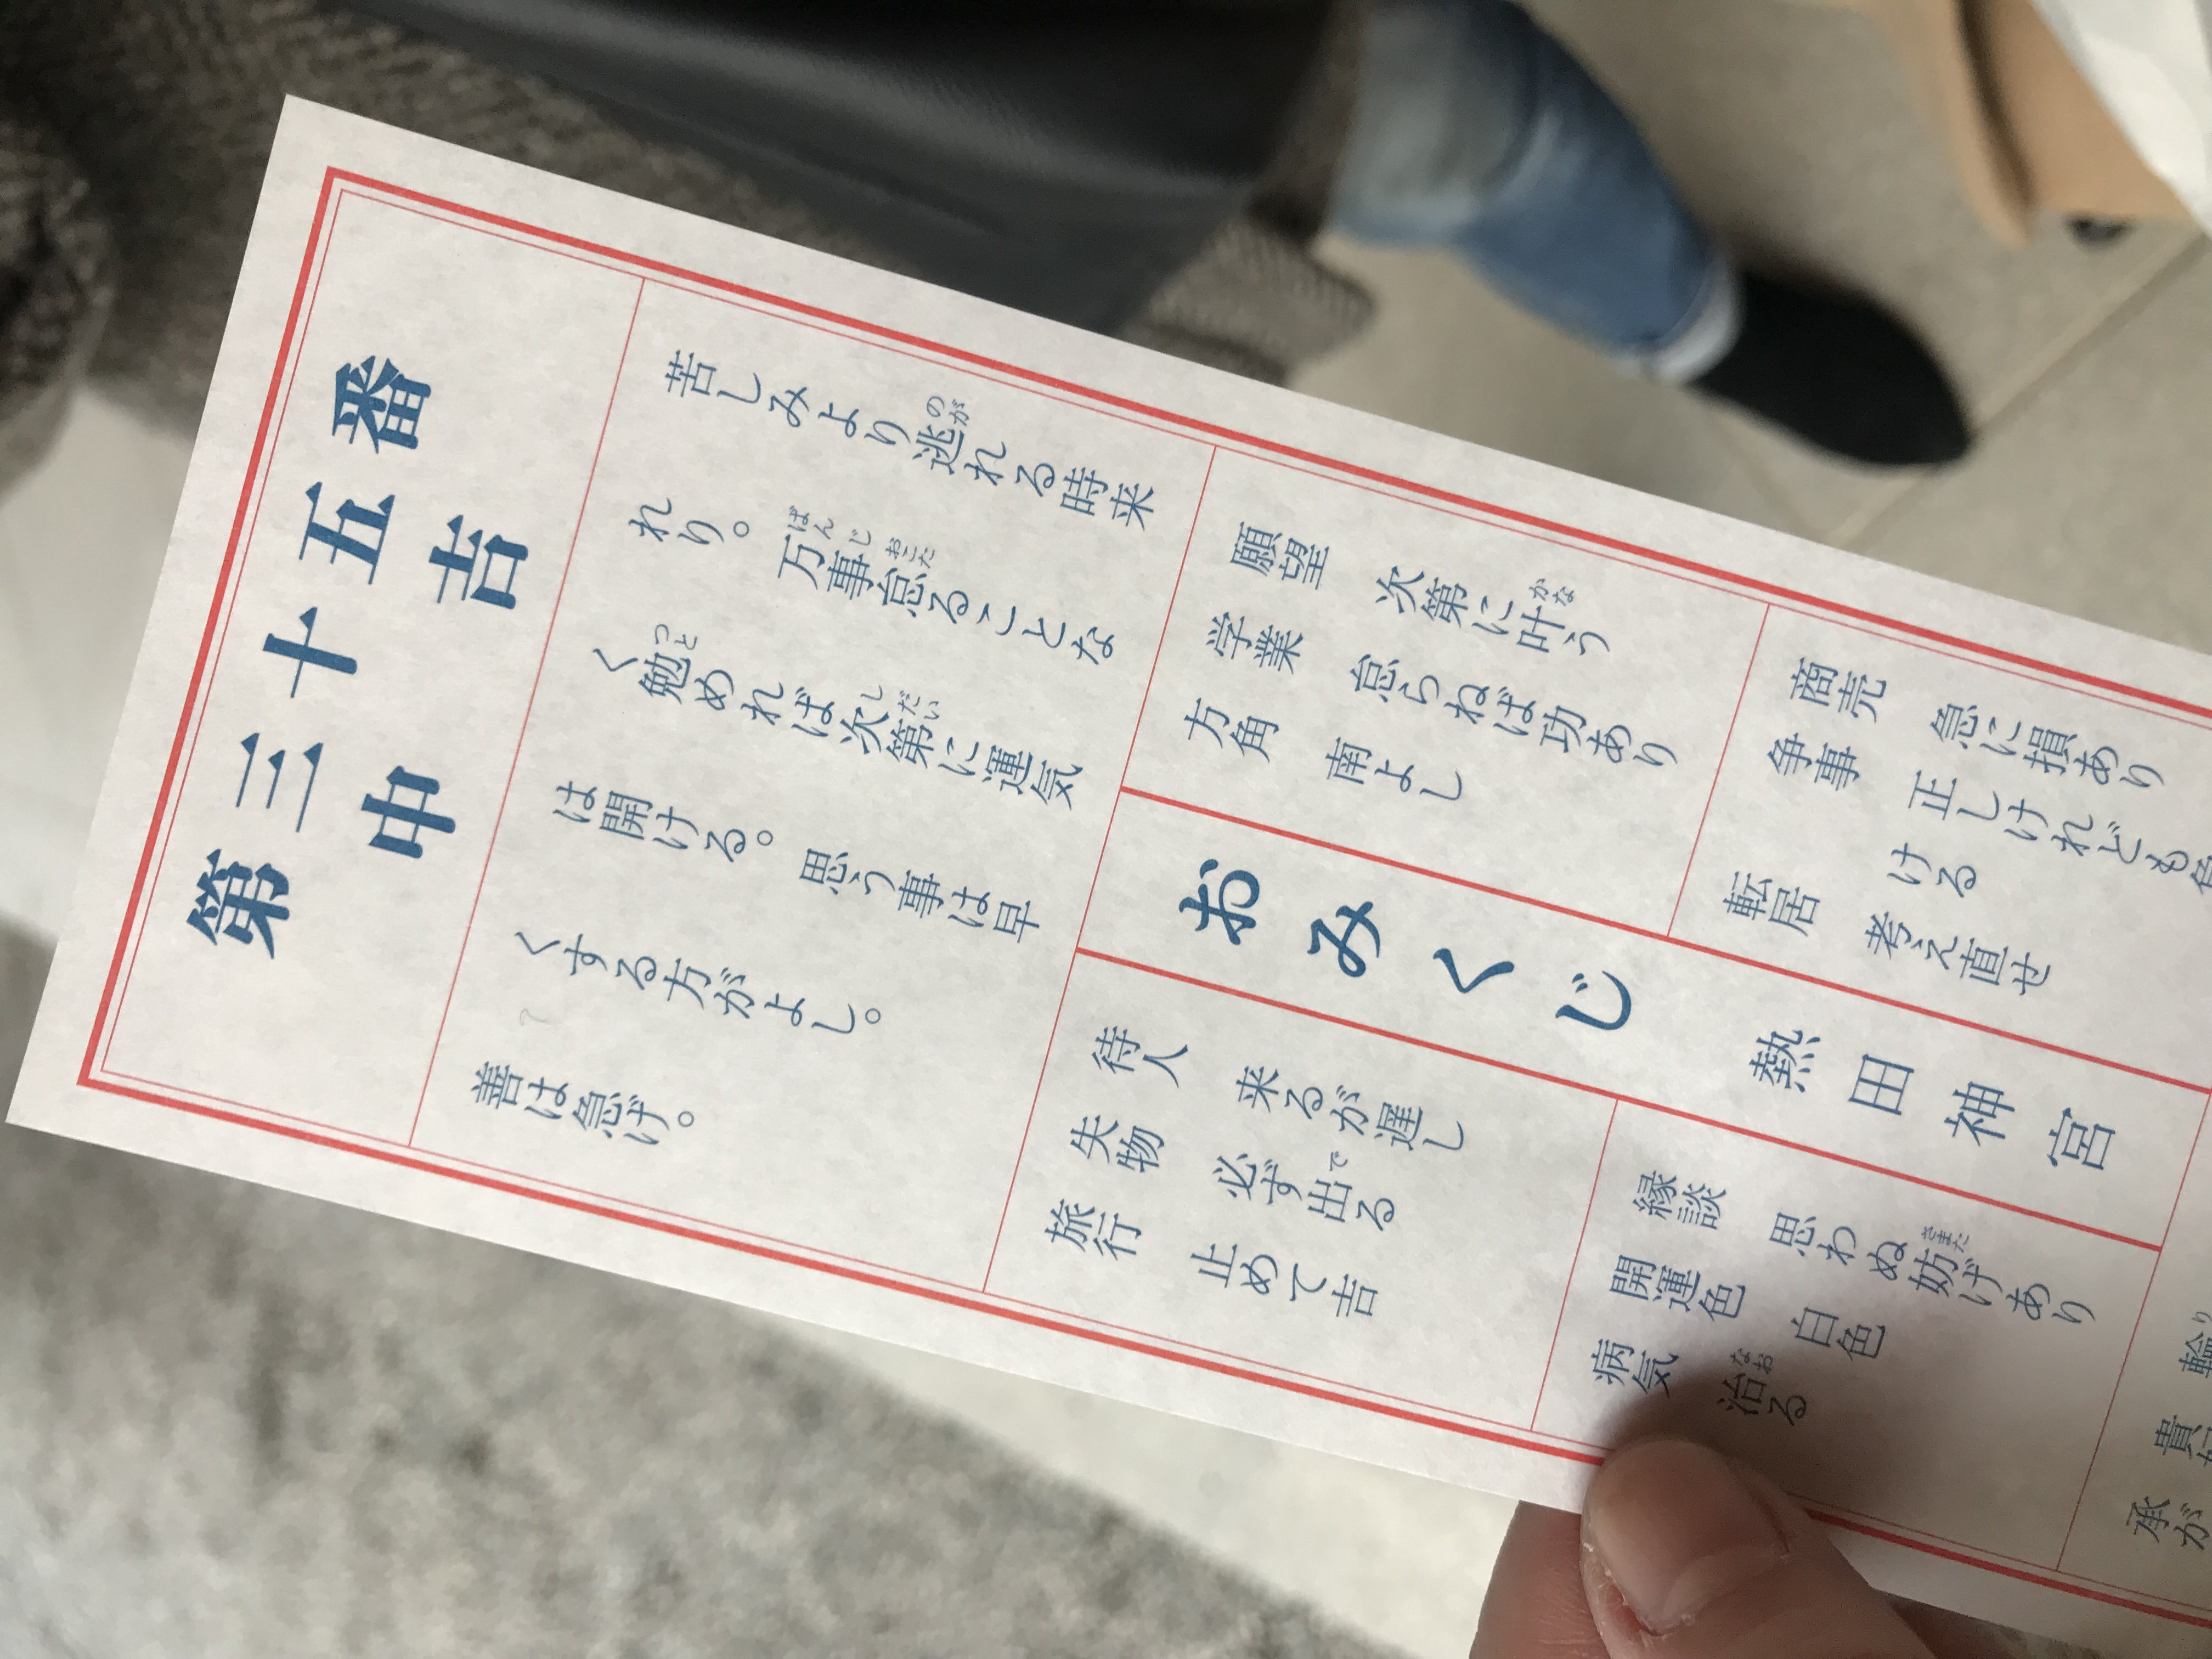 第三十五番
中吉
苦しみより逃れる時来
れり。万事怠ることな
く勉めれば次第に運気
は開ける。思う事は早
くする方がよし。
善は急げ。
願望 次第に叶う
学業 怠らねば功あり
方角 南よし
おみくじ 熱田神宮
待人 来るが遅し
失物 必ず出る
旅行 止めて吉
商売 急に損あり
争事 正しけれども
ける
転居 考え直せ
縁談 思わぬ妨げあり
開運色 白色
病気 治る
輪
貴
承が